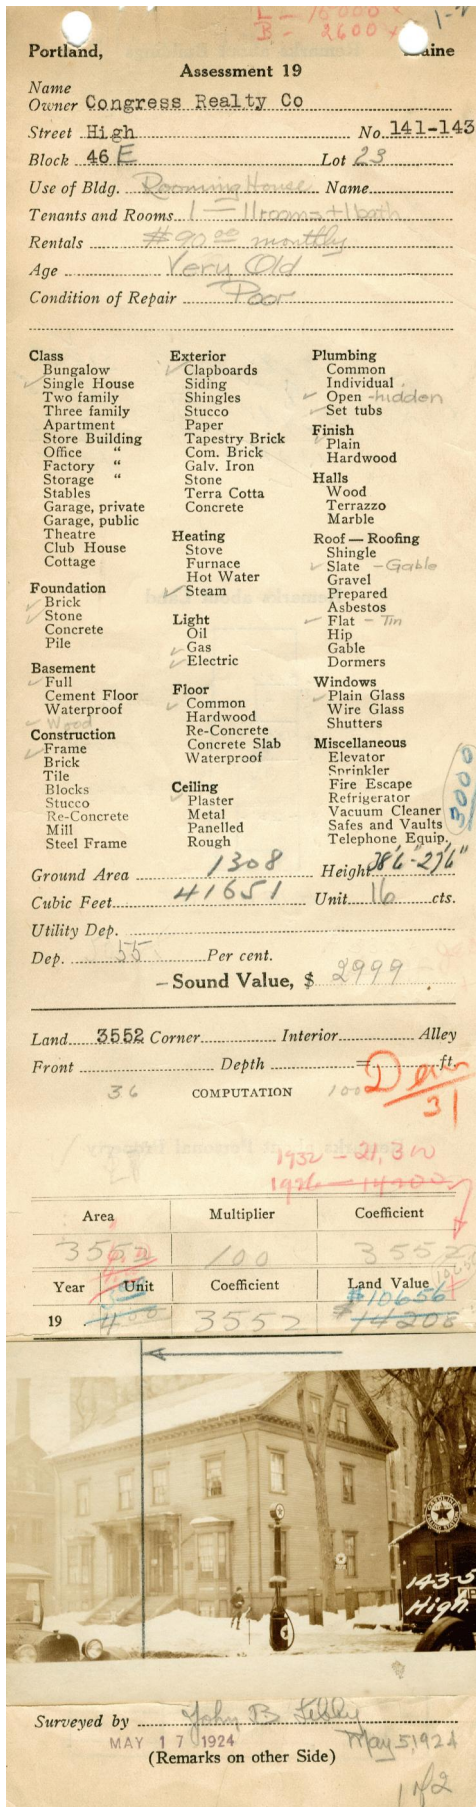 L - 15000 x
B - 2600 x
Portland, Maine
Assessment 19
Name
Owner Congress Realty Co
Street High No. 141-143
Block 46 E Lot 23
Use of Bldg. Rooming House Name
Tenants and Rooms 1 - 11 rooms + 1 bath
Rentals $90.00 monthly
Age Very Old
Condition of Repair Poor
Class
Bungalow
✓ Single House
Two family
Three family
Apartment
Store Building
Office "
Factory "
Storage "
Stables
Garage, private
Garage, public
Theatre
Club House
Cottage
Foundation
✓ Brick
✓ Stone
Concrete
Pile
Basement
✓ Full
Cement Floor
Waterproof
✓ Wood
Construction
✓ Frame
Brick
Tile
Blocks
Stucco
Re-Concrete
Mill
Steel Frame
Exterior
✓ Clapboards
Siding
Shingles
Stucco
Paper
Tapestry Brick
Com. Brick
Galv. Iron
Stone
Terra Cotta
Concrete
Heating
Stove
Furnace
Hot Water
✓ Steam
Light
Oil
✓ Gas
✓ Electric
Floor
✓ Common
Hardwood
Re-Concrete
Concrete Slab
Waterproof
Ceiling
✓ Plaster
Metal
Panelled
Rough
Plumbing
Common
Individual
✓ Open - hidden
✓ Set tubs
Finish
✓ Plain
Hardwood
Halls
Wood
Terrazzo
Marble
Roof — Roofing
Shingle
✓ Slate - Gable
Gravel
Prepared
Asbestos
✓ Flat - Tin
Hip
Gable
Dormers
Windows
✓ Plain Glass
Wire Glass
Shutters
Miscellaneous
Elevator
Sprinkler
Fire Escape
Refrigerator
Vacuum Cleaner
Safes and Vaults
Telephone Equip.
3000
Ground Area 1308 Height 38'6"-27'6"
Cubic Feet 41651 Unit 16 cts.
Utility Dep.
Dep. 55 Per cent.
- Sound Value, $ 2999
Land 3552 Corner Interior Alley
Front Depth = ft.
36 COMPUTATION 100
31
1932 - 21,300
1926 - 14200
Area Multiplier Coefficient
3552 100 3552
Year Unit Coefficient Land Value
$10656
19 400 3552 14208
GASOLINE
143-5
High
Surveyed by John B Libby
MAY 17 1924 May 5, 1924
(Remarks on other Side)
1 of 2